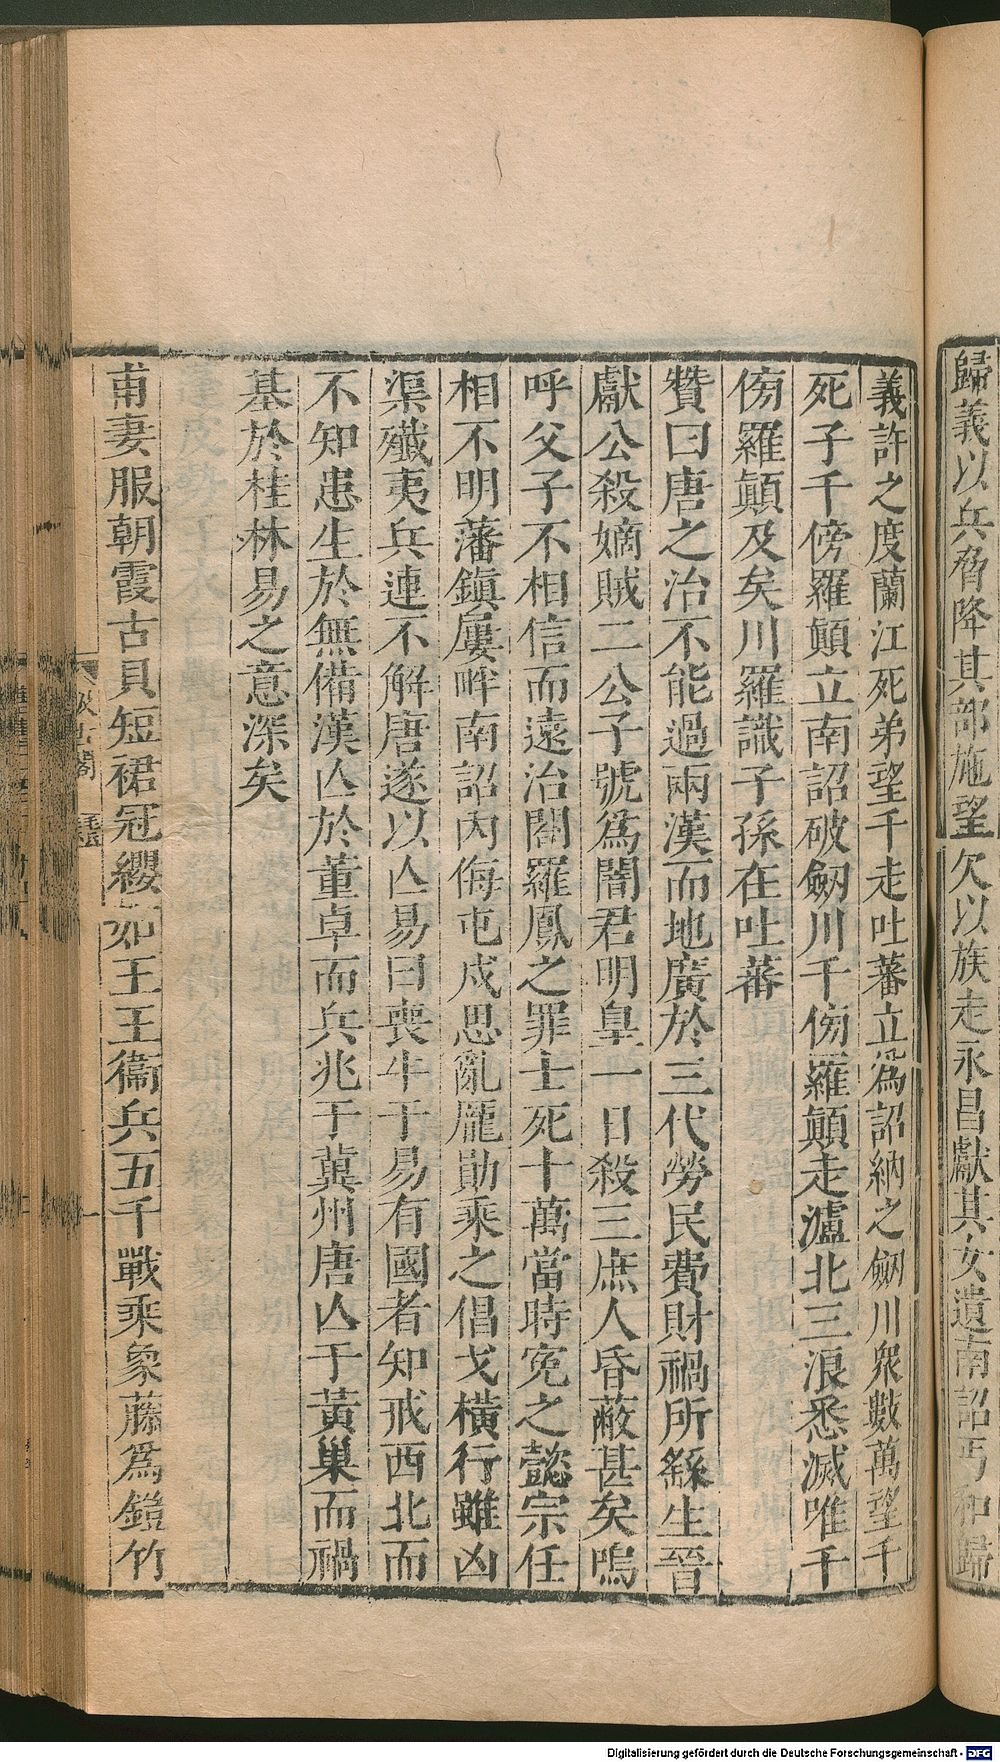 歸義以兵脅降其部施望欠以族走永昌獻其女遺南詔丐和歸
義許之度蘭江死弟望千走吐蕃立爲詔納之劒川衆數萬望千
死子千傍羅顛立南詔破劒川千傍羅顛走瀘北三浪悉滅唯千
傍羅顛及矣川羅識子孫在吐蕃
贊曰唐之治不能過兩漢而地廣於三代勞民費財禍所繇生晉
獻公殺嫡賊二公子號爲闇君明皇一日殺三庶人昏蔽甚矣嗚
呼父子不相信而遠治閣羅鳳之罪士死十萬當時冤之懿宗任
相不明藩鎭屢畔南詔內侮屯戍思亂龐勛乘之倡戈橫行雖凶
渠殲夷兵連不解唐遂以亾易曰喪牛于易有國者知戒西北而
不知患生於無備漢亾於董卓而兵兆于冀州唐亾于黃巢而禍
基於桂林易之意深矣
甫妻服朝霞古貝短裙冠纓如王王衞兵五千戰乘象藤爲鎧竹
汲古閣
Digitalisierung gefördert durch die Deutsche Forschungsgemeinschaft - DFG